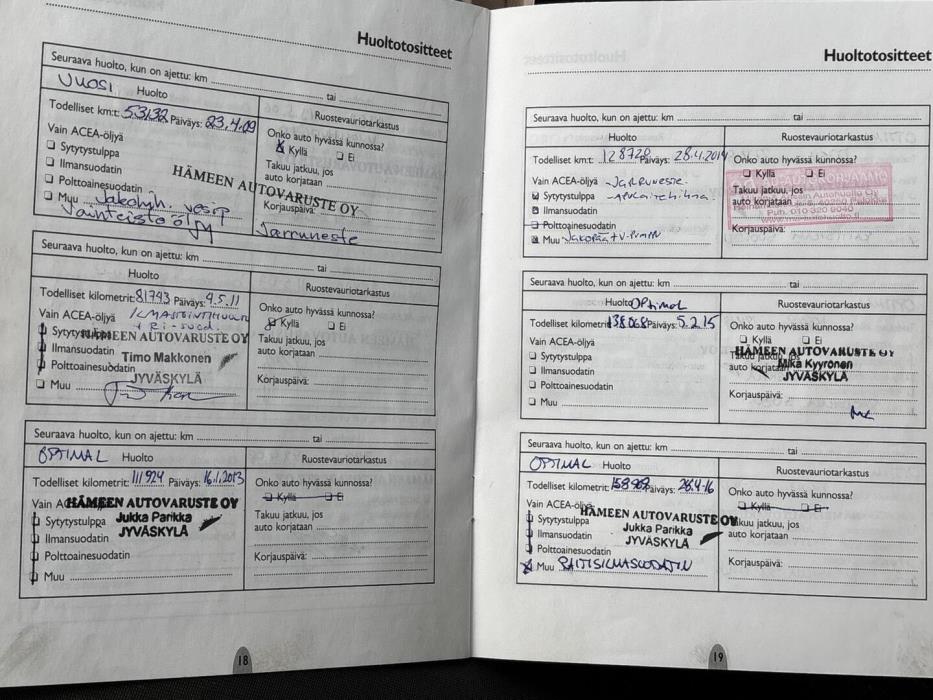 Huoltotositteet
Seuraava huolto, kun on ajettu: km tai
VUOSI Huolto
Ruostevauriotarkastus
Todelliset km:t: 53132 Päiväys: 23.4.09
Onko auto hyvässä kunnossa?
Vain ACEA-öljyä
Kyllä Ei
Sytytystulppa
Takuu jatkuu, jos
auto korjataan
Ilmansuodatin
HÄMEEN AUTOVARUSTE OY
Polttoainesuodatin
Korjauspäivä:
Muu Jakohih. vesip
Vaihteistoöljy
Jarruneste
Seuraava huolto, kun on ajettu: km tai
Huolto
Ruostevauriotarkastus
Todelliset kilometrit: 81793 Päiväys: 9.5.11
Onko auto hyvässä kunnossa?
Vain ACEA-öljyä
Kyllä Ei
Sytytystulppa
Takuu jatkuu, jos
auto korjataan
HÄMEEN AUTOVARUSTE OY
Ilmansuodatin
Timo Makkonen
Polttoainesuodatin
JYVÄSKYLÄ
Korjauspäivä:
Muu
Seuraava huolto, kun on ajettu: km tai
OPTIMAL Huolto
Ruostevauriotarkastus
Todelliset kilometrit: 111924 Päiväys: 16.1.2013
Onko auto hyvässä kunnossa?
Kyllä Ei
HÄMEEN AUTOVARUSTE OY
Sytytystulppa
Jukka Parikka
Takuu jatkuu, jos
auto korjataan
JYVÄSKYLÄ
Ilmansuodatin
Polttoainesuodatin
Korjauspäivä:
Muu
18
Huoltotositteet
Seuraava huolto, kun on ajettu: km tai
Huolto
Ruostevauriotarkastus
Todelliset km:t 128720 Päiväys: 28.4.2014
Onko auto hyvässä kunnossa?
Vain ACEA-öljyä - JARRUNESTE.
Kyllä Ei
Sytytystulppa
Takuu jatkuu, jos
auto korjataan
Ilmansuodatin
Puh. 010 320 9040
Polttoainesuodatin
Korjauspäivä:
Muu
Seuraava huolto, kun on ajettu: km tai
Huolto OPtimal
Ruostevauriotarkastus
Todelliset kilometrit 138068 Päiväys: 5.2.15
Onko auto hyvässä kunnossa?
Vain ACEA-öljyä
Kyllä Ei
Sytytystulppa
HÄMEEN AUTOVARUSTE OY
Takuu jatkuu, jos
auto korjataan
Mika Kyyrönen
JYVÄSKYLÄ
Ilmansuodatin
Polttoainesuodatin
Korjauspäivä:
Muu
Seuraava huolto, kun on ajettu: km tai
OPTIMAL Huolto
Ruostevauriotarkastus
Todelliset kilometrit: 158989 Päiväys: 28.4-16
Onko auto hyvässä kunnossa?
Vain ACEA-öljyä
Kyllä Ei
HÄMEEN AUTOVARUSTE OY
Sytytystulppa
Jukka Parikka
Takuu jatkuu, jos
auto korjataan
JYVÄSKYLÄ
Ilmansuodatin
Polttoainesuodatin
Korjauspäivä:
Muu RAITISILMASUODATIN
19